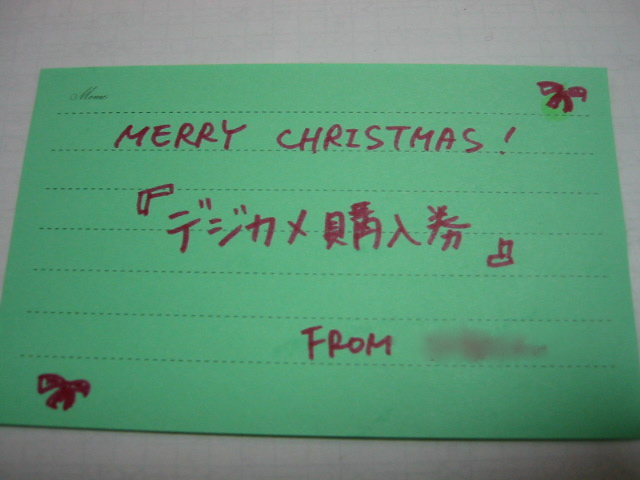 Memo
MERRY CHRISTMAS!
『デジカメ購入券』
FROM